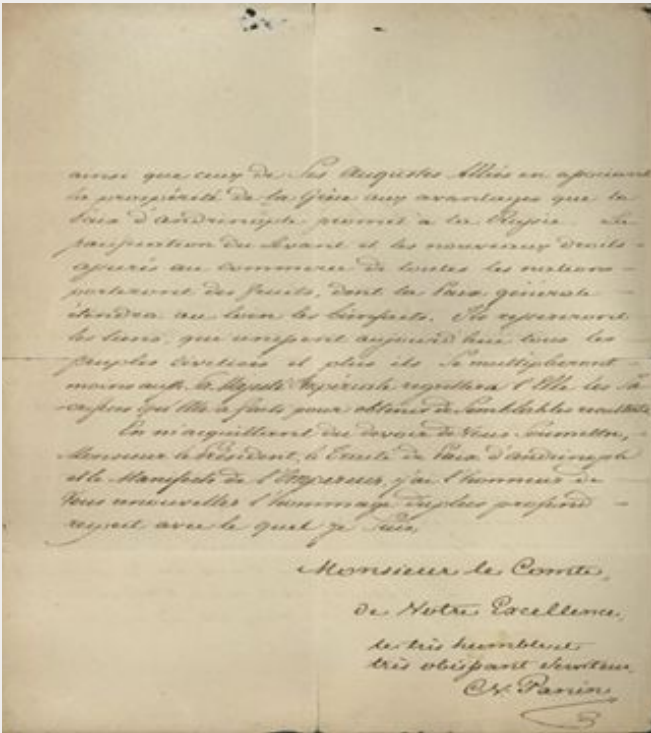 ainsi que ceux de Ses Augustes Alliés en associant
la prospérité de la Grèce aux avantages que la
Paix d'Andrinople promet à la Russie. La
pacification du Levant et les nouveaux droits
assurés au commerce de toutes les nations
porteront des fruits, dont la Paix générale
étendra au loin les bienfaits. Ils resserreront
les liens, que unissent aujourd'hui tous les
peuples civilisés et plus ils se multiplieront
moins aussi Sa Majesté Impériale regrettera l'Elle les
qu'Elle a faits pour obtenir de semblables resultats
En m'acquittant du devoir de Vous soumettre,
Monsieur le Président, le Traité de Paix d'Andrinople
et le Manifeste de l'Empereur, j'ai l'honneur de
Vous renouveller l'hommage du plus profond
respect avec le quel je suis,
Monsieur le Comte,
de Votre Excellence,
le très humble et
très obéissant Serviteur
Panin